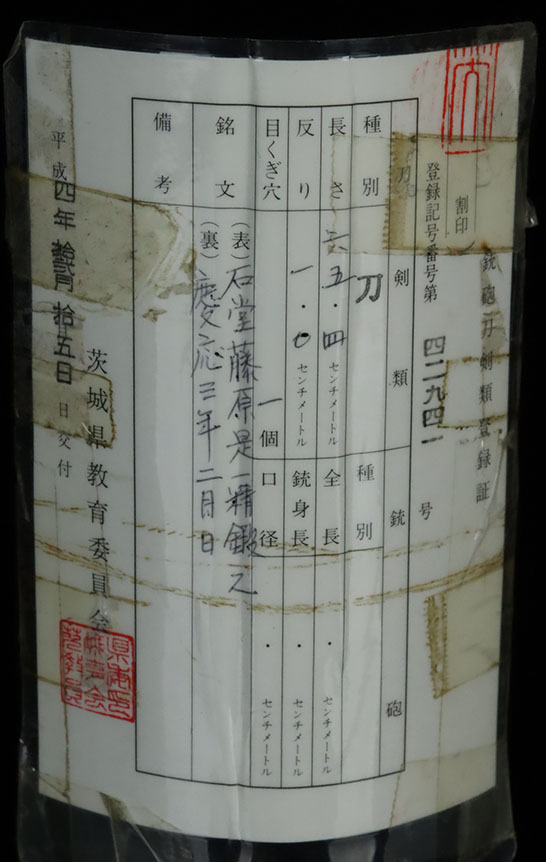 銃砲刀剣類登録証
割印
登録記号番号第 四二九四一 号
刀剣類
銃砲
種別 刀
長さ 六五・四 センチメートル
反り 一・〇 センチメートル
目くぎ穴 一個
種別
全長 ・ センチメートル
銃身長 ・ センチメートル
口径 ・ センチメートル
銘文 (表)石堂藤原是一精鍛之
(裏)慶応三年二月日
備考
平成四年拾弐月拾五日 日交付
茨城県教育委員会